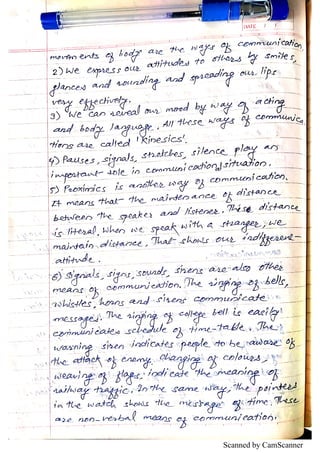 DATE
movements of body are the ways of communication.
2) We express our attitudes to others by smiles,
glances and rounding and spreading our lips
very effectively.
3) We can reveal our mood by way of acting
and body language. All these ways of communica
tions are called 'Kinesics'.
4) Pauses, signals, stretches, silence play an
important role in communication situation.
5) Proximics is another way of communication.
It means that the maintenance of distance
between the speaker and listener. This distance
is literal. When we speak with a stranger, we
maintain distance. That shows our indifferent-
attitude.
6) Signals, signs, sounds, sirens are also other
means of communication. The ringing of bells,
whistles, horns and sirens communicate
messages. The ringing of college bell is easily
communicates schedule of time-table. The
warning siren indicates people to be aware of
the attack of enemy. Changing of colours,
weaving of flags indicate the meaning of
railway traffic. In the same way, the pointers
in the watch shows the message of time. These
are non-verbal means of communication.
Scanned by CamScanner